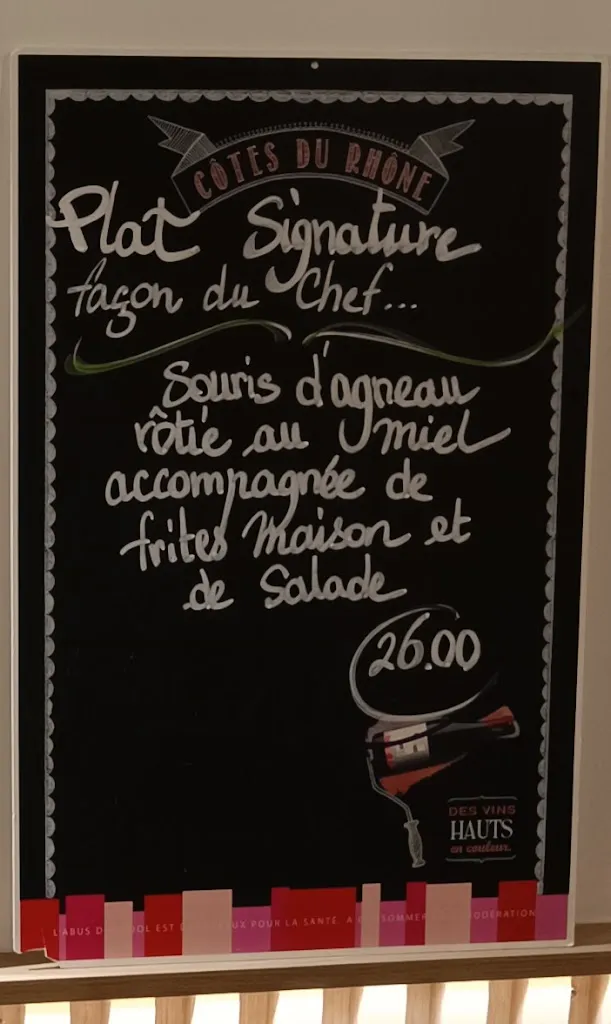 CÔTES DU RHÔNE
Plat Signature
façon du Chef...
Souris d'agneau
rôtie au miel
accompagnée de
frites Maison et
de Salade
26.00
DES VINS
HAUTS
en couleur.
L'ABUS D'ALCOOL EST DANGEREUX POUR LA SANTÉ. A CONSOMMER AVEC MODÉRATION